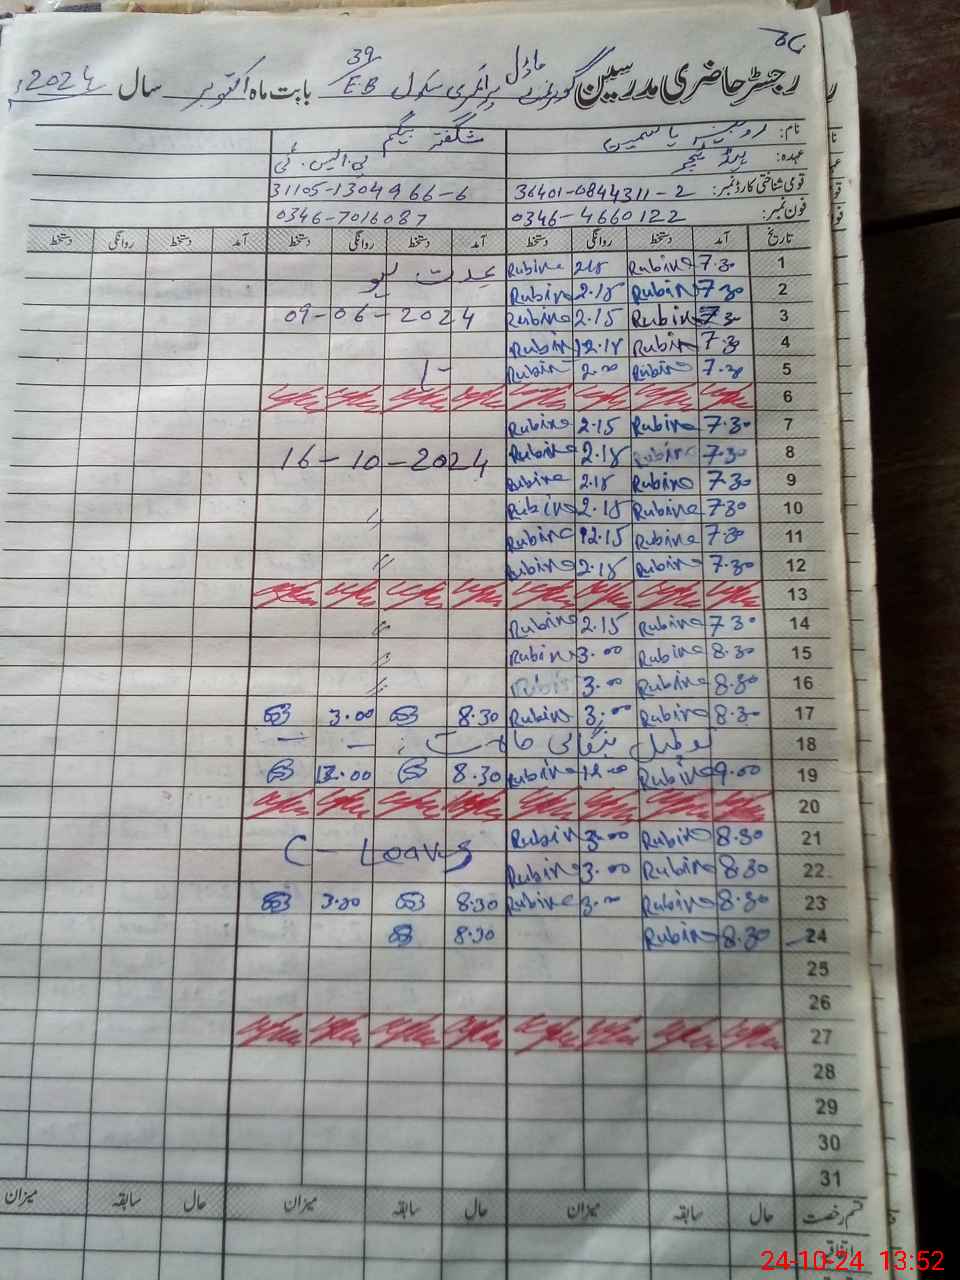 رجسٹر حاضری مدرسین گورنمنٹ ماڈل پرائمری سکول 39 EB بابت ماہ اکتوبر سال 2024ء
نام: روبینہ یاسمین شگفتہ بیگم
عہدہ: ہیڈ ٹیچر پی.ایس.ٹی
قومی شناختی کارڈ نمبر: 36401-0844311-2 31105-1304966-6
فون نمبر: 0346-4660122 0346-7016087
تاریخ آمد دستخط روانگی دستخط آمد دستخط روانگی دستخط آمد دستخط روانگی دستخط
1 7.30 Rubina 2.15 Rubina عدت
2 7.30 Rubina 2.15 Rubina
3 7.30 Rubina 2.15 Rubina 09-06-2024
4 7.30 Rubina 2.15 Rubina
5 7.30 Rubina 2.00 Rubina تا
6
7 7.30 Rubina 2.15 Rubina
8 7.30 Rubina 2.15 Rubina 16-10-2024
9 7.30 Rubina 2.15 Rubina
10 7.30 Rubina 2.15 Rubina //
11 7.30 Rubina 2.15 Rubina
12 7.30 Rubina 2.15 Rubina //
13
14 7.30 Rubina 2.15 Rubina //
15 8.30 Rubina 3.00 Rubina //
16 8.30 Rubina 3.00 Rubina //
17 8.30 Rubina 3.00 Rubina 8.30 3.00
18 تعطیل
19 9.00 Rubina 12.00 Rubina 8.30 12.00
20
21 8.30 Rubina 3.00 Rubina C-Leave
22 8.30 Rubina 3.00 Rubina
23 8.30 Rubina 3.00 Rubina 8.30 3.00
24 8.30 Rubina 8.30
25
26
27
28
29
30
31
قسم رخصت حال سابقہ میزان حال سابقہ میزان حال سابقہ میزان
اتفاقیہ
24-10-24 13:52